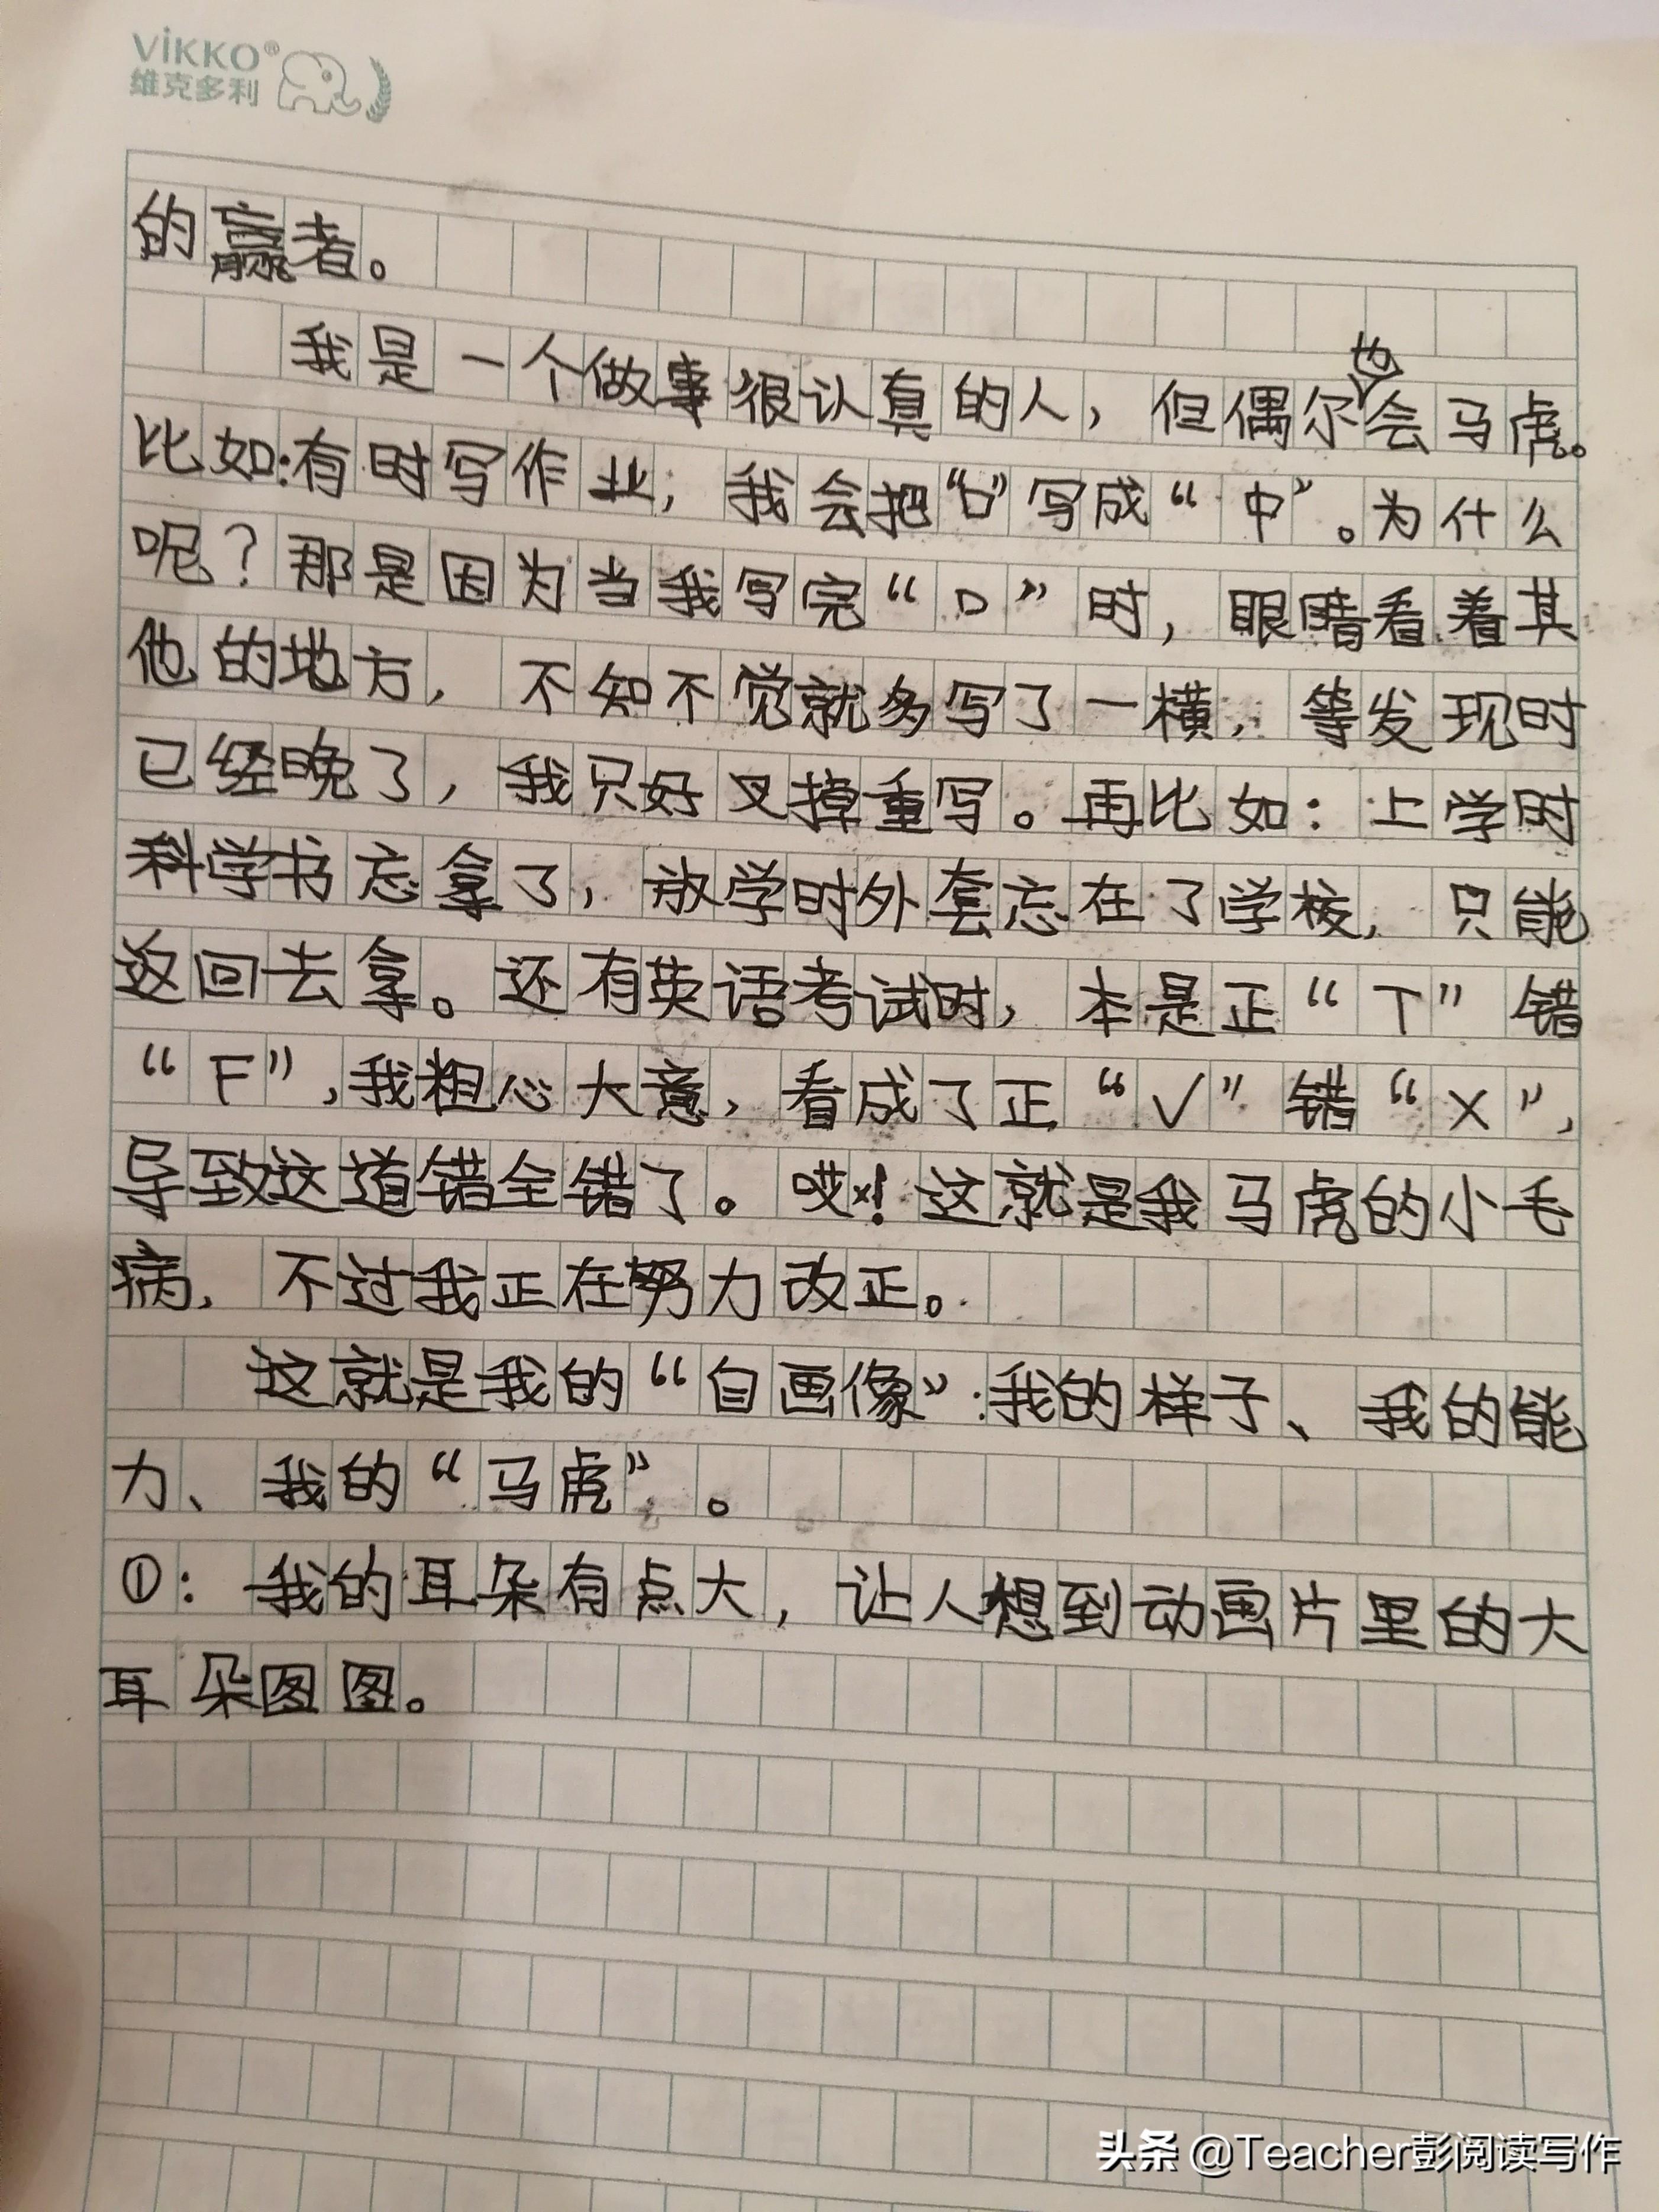 VIKKO®
维克多利
的赢者。
我是一个做事很认真的人，但偶尔也会马虎。
比如:有时写作业，我会把“口”写成“中”。为什么
呢？那是因为当我写完“口”时，眼睛看着其
他的地方，不知不觉就多写了一横，等发现时
已经晚了，我只好叉掉重写。再比如：上学时
科学书忘拿了，放学时外套忘在了学校，只能
返回去拿。还有英语考试时，本是正“T”错
“F”,我粗心大意，看成了正“√”错“×”,
导致这道错全错了。哎!这就是我马虎的小毛
病，不过我正在努力改正。
这就是我的“自画像”:我的样子、我的能
力、我的“马虎”。
①：我的耳朵有点大，让人想到动画片里的大
耳朵图图。
头条 @Teacher彭阅读写作